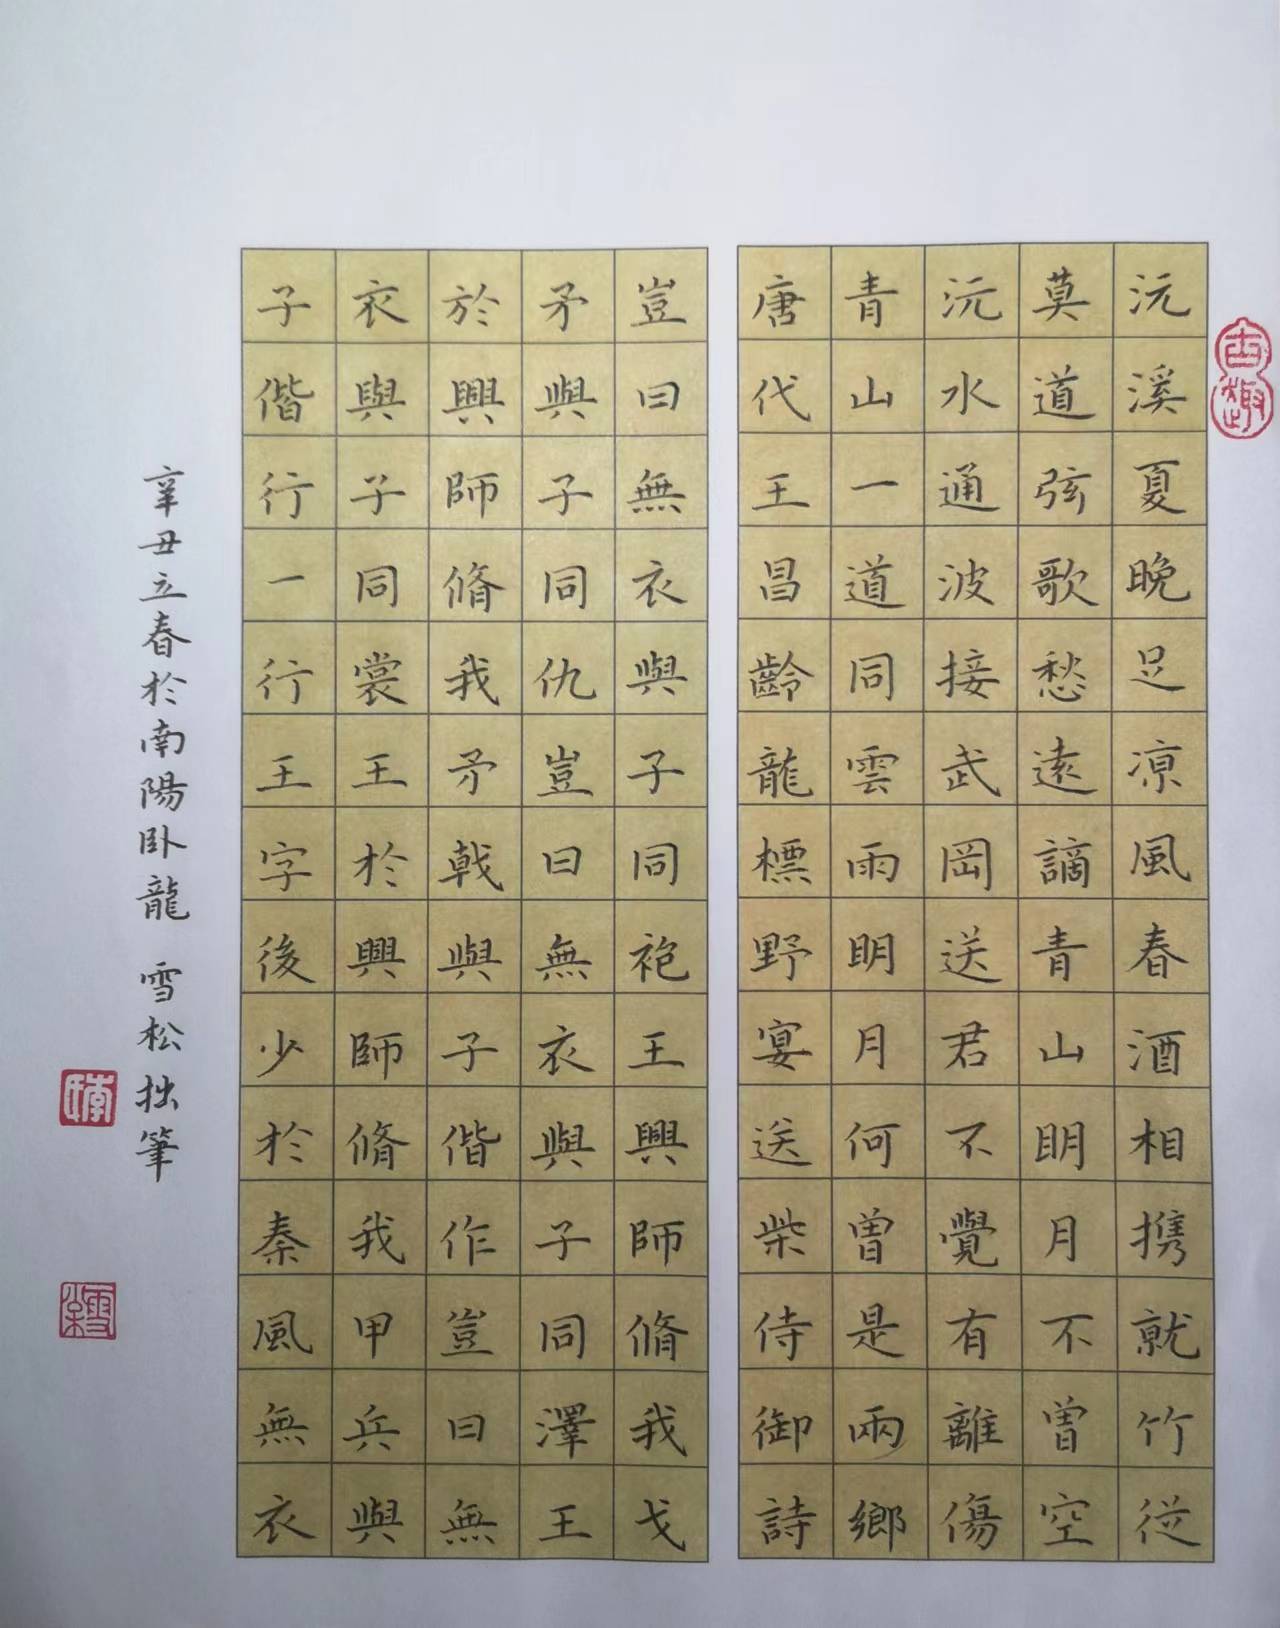 古趣
沅溪夏晚足凉風春酒相携就竹從
莫道弦歌愁遠謫青山明月不曾空
沅水通波接武岡送君不覺有離傷
青山一道同雲雨明月何曾是兩鄉
唐代王昌齡龍標野宴送柴侍御詩
豈曰無衣與子同袍王興師脩我戈
矛與子同仇豈曰無衣與子同澤王
於興師脩我矛戟與子偕作豈曰無
衣與子同裳王於興師脩我甲兵與
子偕行一行王字後少於秦風無衣
辛丑立春於南陽卧龍 雪松拙筆
雪松